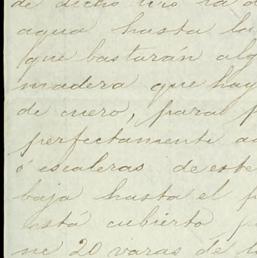 de dicho tiro la d
agua hasta la
que bastarán alg
madera que hay
de cuero, para p
perfectamente a
ó escaleras de este
baja hasta el p
está cubierto p
ne 20 varas de l